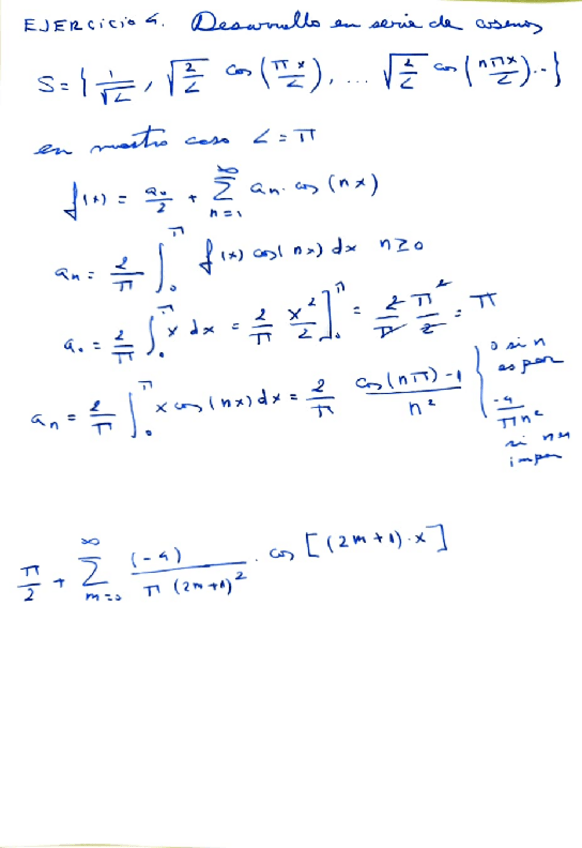 EJERCICIO 4. Desarrollo en serie de cosenos
S = { 1/√L, √(2/L) cos(πx/L), ... √(2/L) cos(nπx/L) ... }
en nuestro caso L = π
f(x) = a₀/2 + ∑_{n=1}^{∞} an · cos(nx)
an = 2/π ∫₀^π f(x) cos(nx) dx n ≥ 0
a₀ = 2/π ∫₀^π x dx = 2/π x²/2 ]₀^π = 2/π π²/2 = π
an = 2/π ∫₀^π x cos(nx) dx = 2/π (cos(nπ) - 1)/n² { 0 si n es par
-4/πn² si n es impar
π/2 + ∑_{m=0}^{∞} (-4)/(π(2m+1)²) · cos[(2m+1)·x]